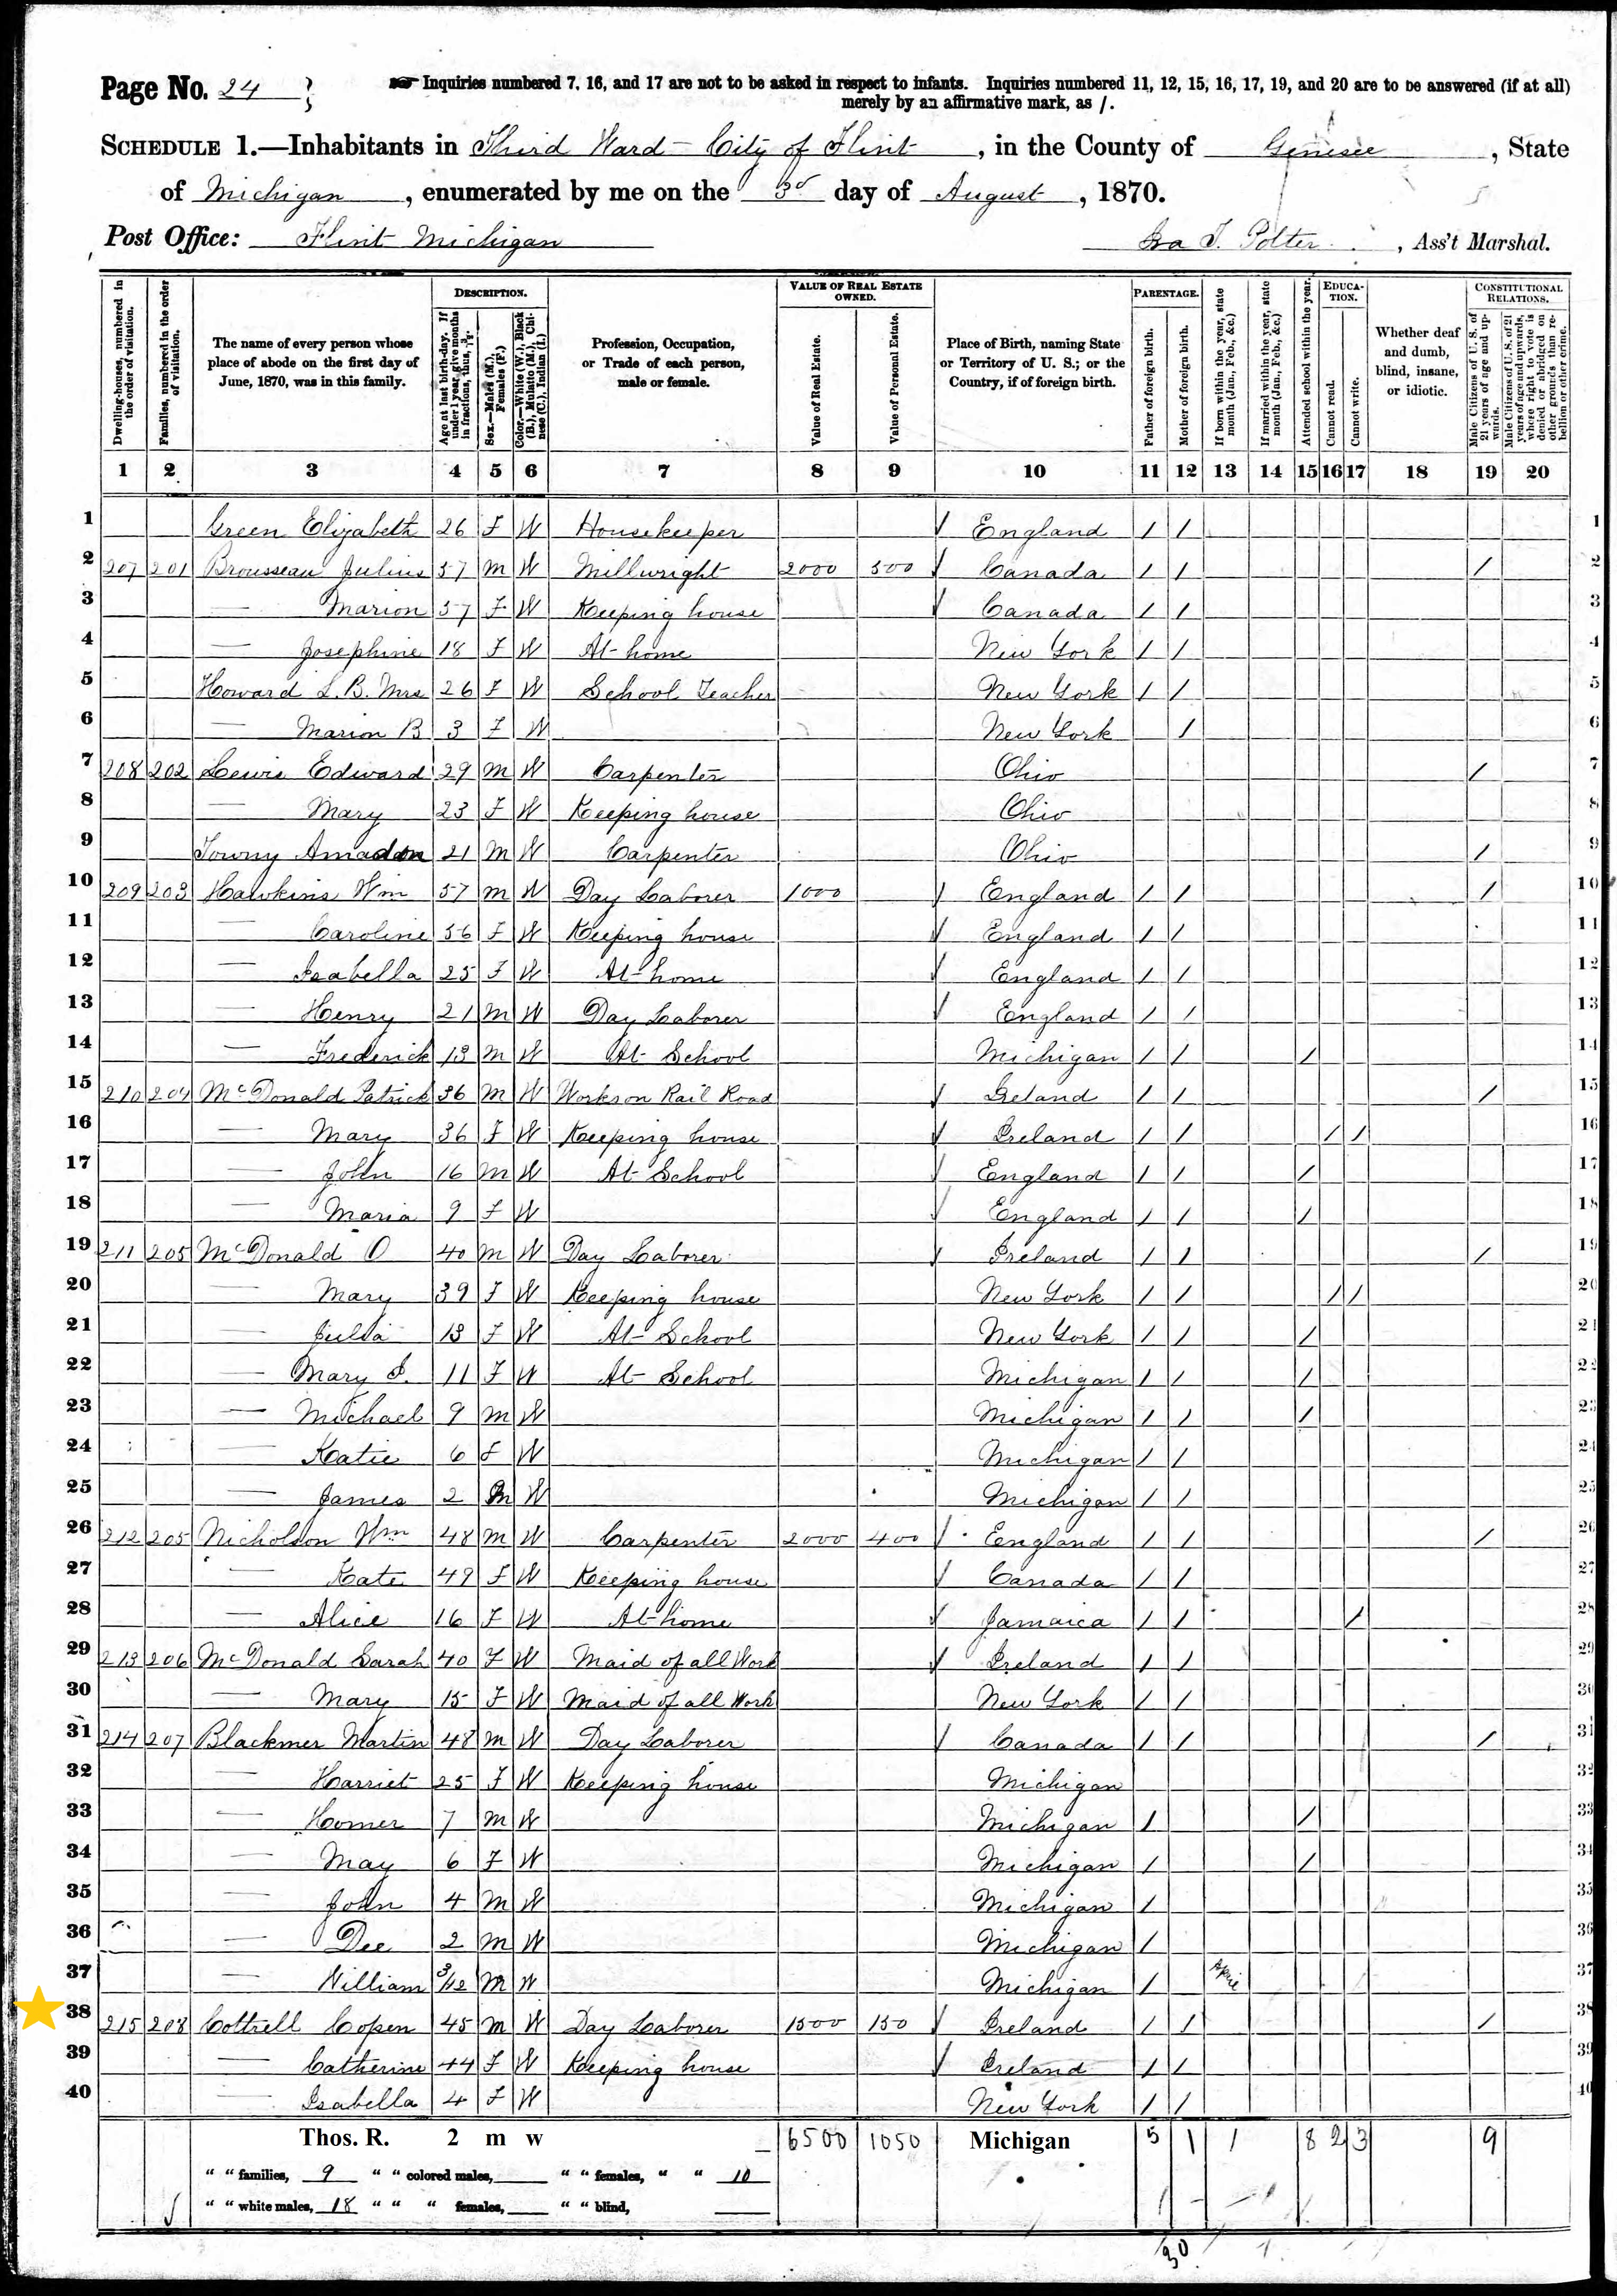 Page No. 24
Inquiries numbered 7, 16, and 17 are not to be asked in respect to infants. Inquiries numbered 11, 12, 15, 16, 17, 19, and 20 are to be answered (if at all)
merely by an affirmative mark, as /.
SCHEDULE 1.—Inhabitants in Third Ward - City of Flint, in the County of Genesee, State
of Michigan, enumerated by me on the 3d day of August, 1870.
Post Office: Flint Michigan Ira T. Potter, Ass't Marshal.
Dwelling-houses, numbered in the order of visitation.
Families, numbered in the order of visitation.
The name of every person whose place of abode on the first day of June, 1870, was in this family.
DESCRIPTION.
Age at last birth-day. If under 1 year, give months in fractions, thus, 3/12.
Sex.—Males (M.), Females (F.)
Color.—White (W.), Black (B.), Mulatto (M.), Chinese (C.), Indian (I.)
Profession, Occupation, or Trade of each person, male or female.
VALUE OF REAL ESTATE OWNED.
Value of Real Estate.
Value of Personal Estate.
Place of Birth, naming State or Territory of U. S.; or the Country, if of foreign birth.
PARENTAGE.
Father of foreign birth.
Mother of foreign birth.
If born within the year, state month (Jan., Feb., &c.)
If married within the year, state month (Jan., Feb., &c.)
Attended school within the year.
EDUCATION.
Cannot read.
Cannot write.
Whether deaf and dumb, blind, insane, or idiotic.
CONSTITUTIONAL RELATIONS.
Male Citizens of U. S. of 21 years of age and upwards.
Male Citizens of U. S. of 21 years of age and upwards, where right to vote is denied or abridged on other grounds than rebellion or other crime.
1 2 3 4 5 6 7 8 9 10 11 12 13 14 15 16 17 18 19 20
1 Green Elizabeth 26 F W Housekeeper / England / / 1
2 207 201 Brousseau Julius 57 M W Millwright 2000 500 / Canada / / / 2
3 — Marion 57 F W Keeping house / Canada / / 3
4 — Josephine 18 F W At home New York / / 4
5 Howard L. B. Mrs 26 F W School Teacher New York / / 5
6 — Marion B 3 F W New York / 6
7 208 202 Lewis Edward 29 M W Carpenter Ohio / 7
8 — Mary 23 F W Keeping house Ohio 8
9 Towny 21 M W Carpenter Ohio / 9
10 209 203 Hawkins Wm 57 M W Day Laborer 1000 / England / / / 10
11 — Caroline 56 F W Keeping house / England / / 11
12 — Isabella 25 F W At home / England / / 12
13 — Henry 21 M W Day Laborer / England / / 13
14 — Frederick 13 M W At School Michigan / / / 14
15 210 204 McDonald Patrick 36 M W Works on Rail Road / Ireland / / / 15
16 — Mary 36 F W Keeping house / Ireland / / / / 16
17 — John 16 M W At School / England / / / 17
18 — Maria 9 F W / England / / / 18
19 211 205 McDonald O 40 M W Day Laborer / Ireland / / / 19
20 — Mary 39 F W Keeping house New York / / / / 20
21 — Julia 13 F W At School New York / / / 21
22 — Mary J. 11 F W At School Michigan / / / 22
23 — Michael 9 M W Michigan / / / 23
24 — Katie 6 F W Michigan / / 24
25 — James 2 M W Michigan / / 25
26 212 205 Nicholson Wm 48 M W Carpenter 2000 400 / England / / / 26
27 — Kate 49 F W Keeping house / Canada / / 27
28 — Alice 16 F W At home / Jamaica / / / 28
29 213 206 McDonald Sarah 40 F W Maid of all Work / Ireland / / 29
30 — Mary 15 F W Maid of all Work New York / / 30
31 214 207 Blackmer Martin 48 M W Day Laborer / Canada / / / 31
32 — Harriet 25 F W Keeping house Michigan 32
33 — Homer 7 M W Michigan / / 33
34 — May 6 F W Michigan / / 34
35 — John 4 M W Michigan / 35
36 — Dee 2 M W Michigan / 36
37 — William 3/12 M W Michigan / April 37
38 215 208 Cottrell Copen 45 M W Day Laborer 1500 150 / Ireland / / / 38
39 — Catherine 44 F W Keeping house / Ireland / / 39
40 — Isabella 4 F W New York / / 40
Thos. R. 2 m w 6500 1050 Michigan 5 1 1 8 2 3 9
" " families, 9 " " colored males, " " females, " " 10
" " white males, 18 " " " females, " " blind,
30